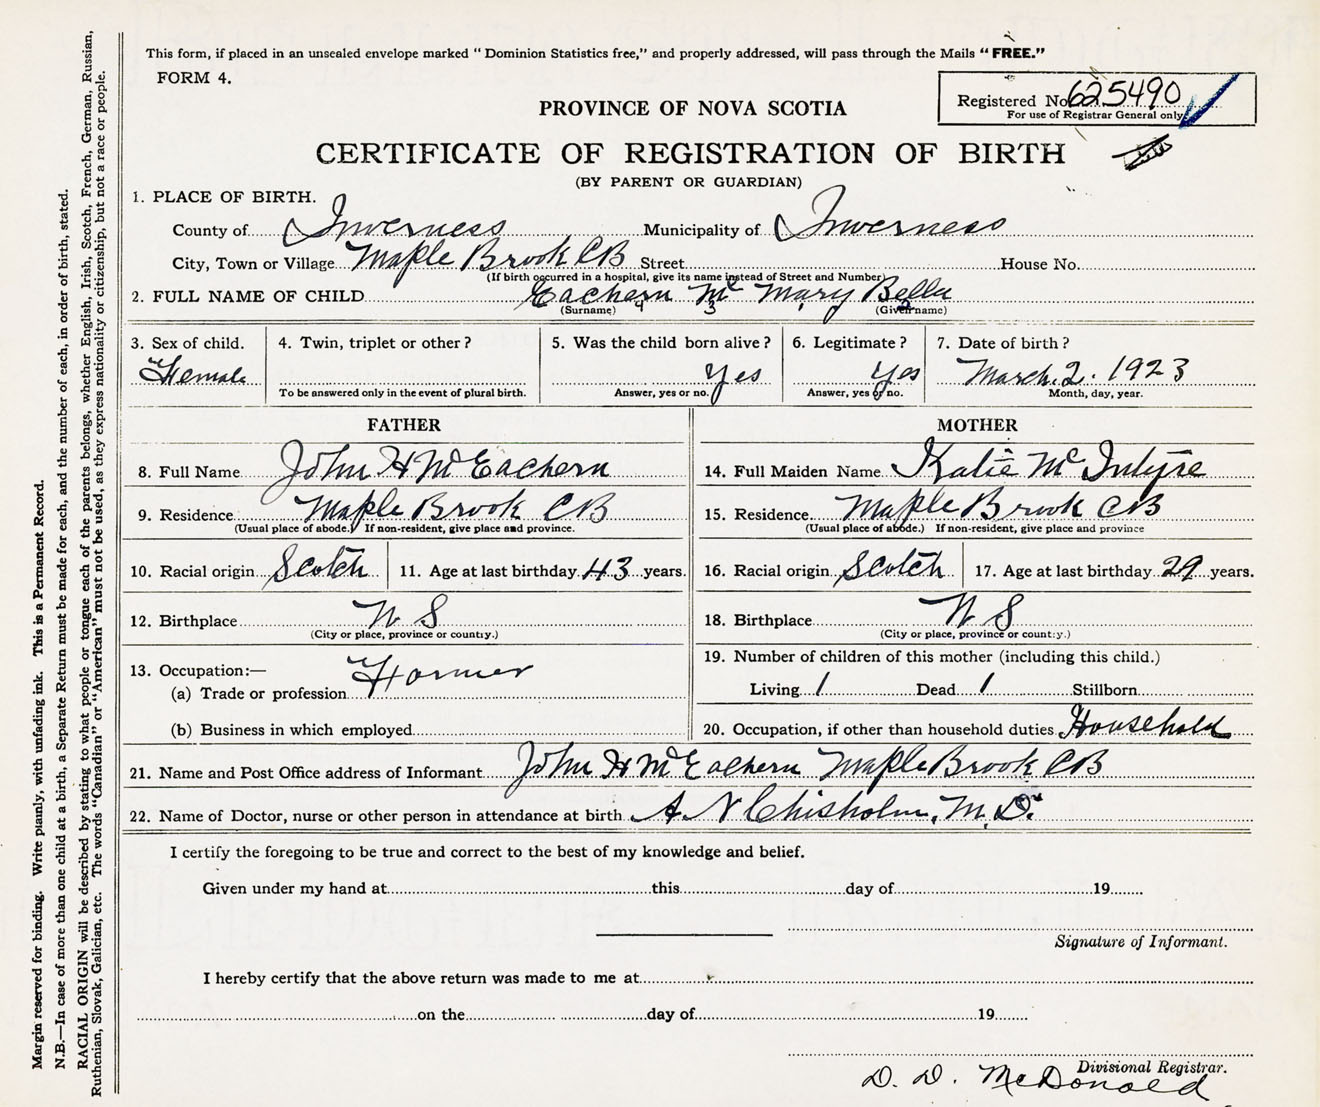 This form, if placed in an unsealed envelope marked “Dominion Statistics free,” and properly addressed, will pass through the Mails “FREE.”
FORM 4.
Registered No. 625490
For use of Registrar General only
PROVINCE OF NOVA SCOTIA
CERTIFICATE OF REGISTRATION OF BIRTH
(BY PARENT OR GUARDIAN)
1. PLACE OF BIRTH.
County of Inverness Municipality of Inverness
City, Town or Village Maple Brook CB Street House No.
(If birth occurred in a hospital, give its name instead of Street and Number)
2. FULL NAME OF CHILD Eachern Mc Mary Bella
(Surname) (Given name)
3. Sex of child. 4. Twin, triplet or other? 5. Was the child born alive? 6. Legitimate? 7. Date of birth?
Female Yes Yes March. 2. 1923
To be answered only in the event of plural birth. Answer, yes or no. Answer, yes or no. Month, day, year.
FATHER MOTHER
8. Full Name John H McEachern 14. Full Maiden Name Katie Mc Intyre
9. Residence Maple Brook CB 15. Residence Maple Brook CB
(Usual place of abode.) If non-resident, give place and province. (Usual place of abode.) If non-resident, give place and province
10. Racial origin Scotch 11. Age at last birthday 43 years. 16. Racial origin Scotch 17. Age at last birthday 29 years.
12. Birthplace N S 18. Birthplace N S
(City or place, province or country.) (City or place, province or country.)
13. Occupation:— Farmer 19. Number of children of this mother (including this child.)
(a) Trade or profession Living 1 Dead 1 Stillborn
(b) Business in which employed 20. Occupation, if other than household duties Household
21. Name and Post Office address of Informant John H McEachern Maple Brook CB
22. Name of Doctor, nurse or other person in attendance at birth A N Chisholm, M.D.
I certify the foregoing to be true and correct to the best of my knowledge and belief.
Given under my hand at this day of 19
Signature of Informant.
I hereby certify that the above return was made to me at
on the day of 19
Divisional Registrar.
D. D. McDonald
Margin reserved for binding. Write plainly, with unfading ink. This is a Permanent Record.
N.B.—In case of more than one child at a birth, a Separate Return must be made for each, and the number of each, in order of birth, stated.
RACIAL ORIGIN will be described by stating to what people or tongue each of the parents belongs, whether English, Irish, Scotch, French, German, Russian,
Ruthenian, Slovak, Galician, etc. The words “Canadian” or “American” must not be used, as they express nationality or citizenship, but not a race or people.